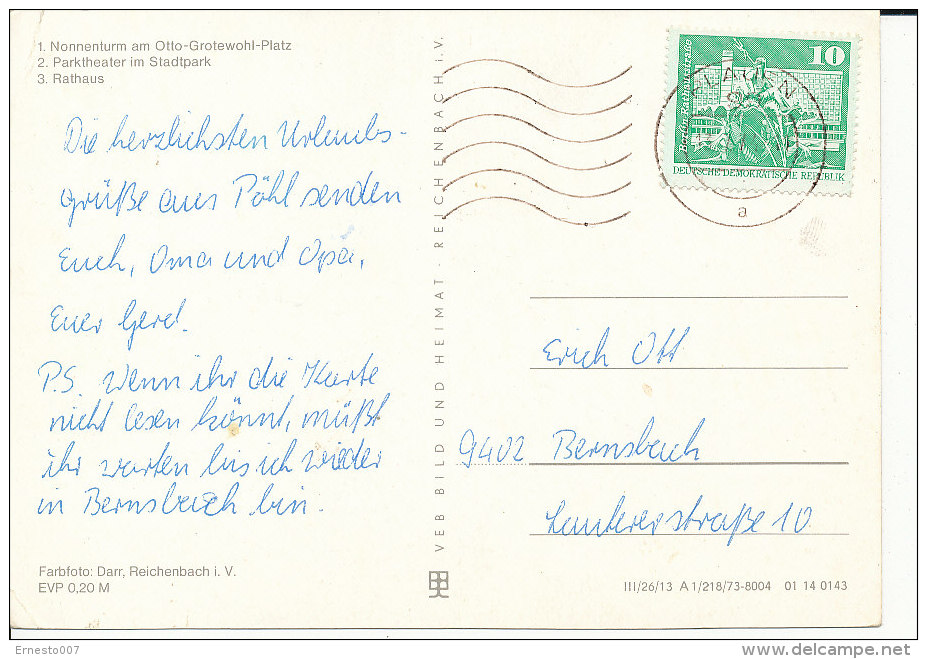 1. Nonnenturm am Otto-Grotewohl-Platz
2. Parktheater im Stadtpark
3. Rathaus
Die herzlichsten Urlaubs-
grüße aus Pöhl senden
Euch, Oma und Opa,
Euer Gerd.
P.S. Wenn ihr die Karte
nicht lesen könnt, müßt
ihr warten bis ich wieder
in Bernsbach bin.
Farbfoto: Darr, Reichenbach i. V.
EVP 0,20 M
VEB BILD UND HEIMAT · REICHENBACH i. V.
10
DEUTSCHE DEMOKRATISCHE REPUBLIK
PLAUEN
a
Erich Ott
9402 Bernsbach
straße 10
III/26/13 A 1/218/73-8004 01 14 0143
Ernesto007
www.delcampe.net